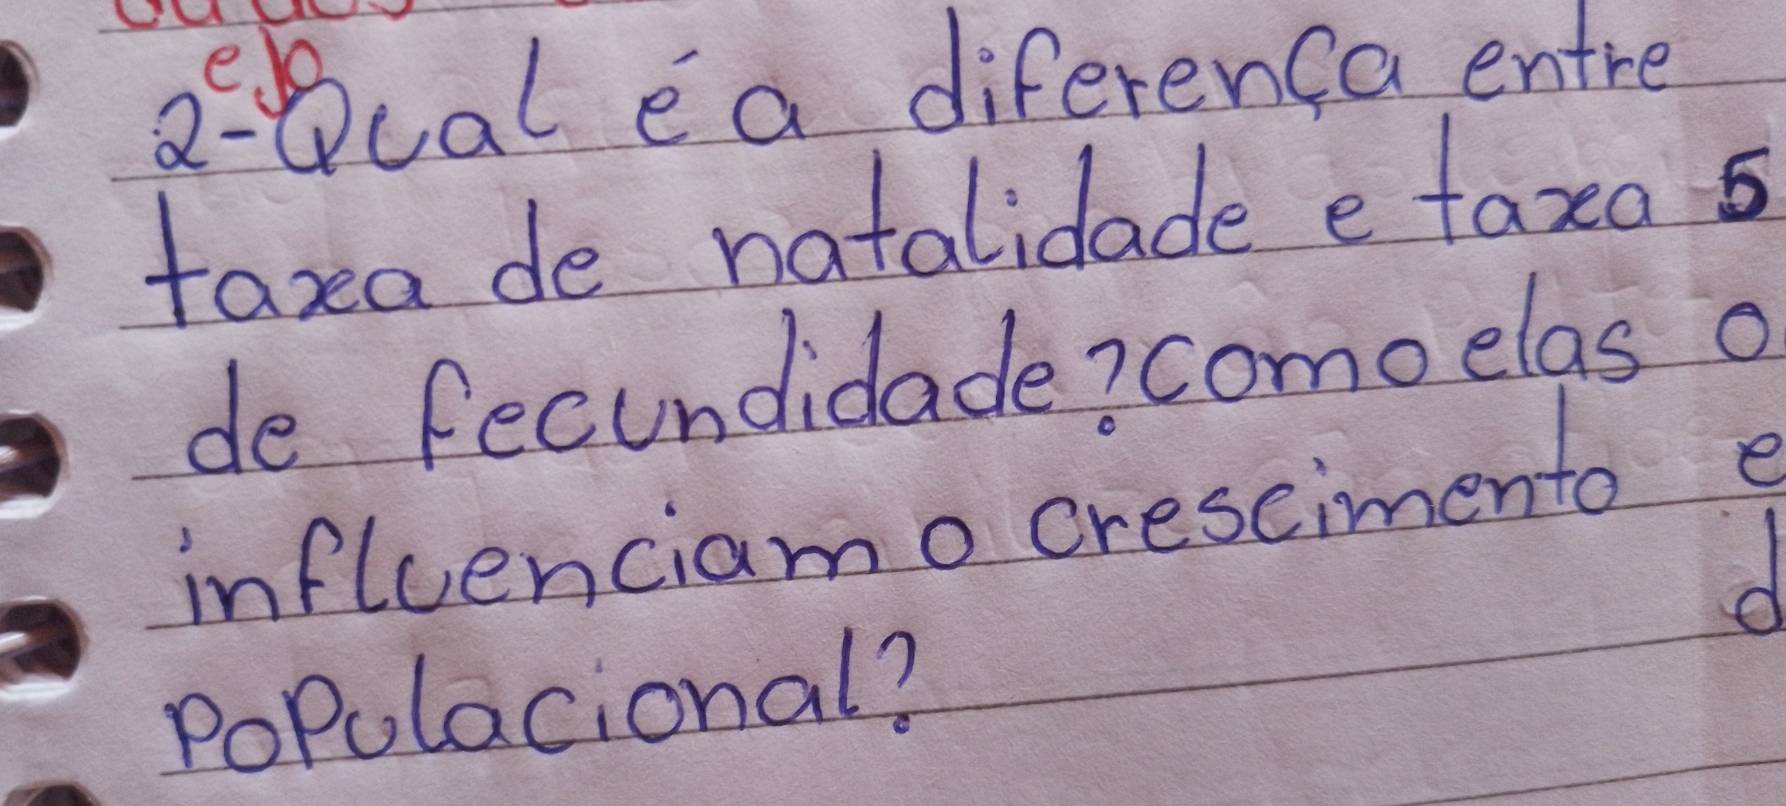 e,b
2-Qual é a diferença entre
taxa de natalidade e taxa 5
de fecundidade? como elas o
influenciam o crescimento e
d
populacional?